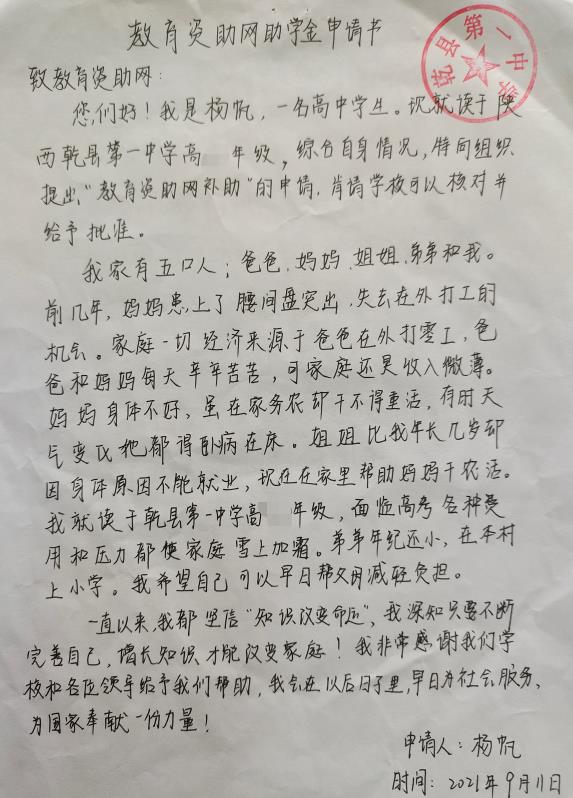 教育资助网助学金申请书
乾县第一中学
致教育资助网：
您们好！我是杨帆，一名高中学生。现就读于陕
西乾县第一中学高 年级，综合自身情况，特向组织
提出“教育资助网补助”的申请，肯请学校可以核对并
给予批准。
我家有五口人；爸爸、妈妈、姐姐、弟弟和我。
前几年，妈妈患上了腰间盘突出，失去在外打工的
机会。家庭一切经济来源于爸爸在外打零工，爸
爸和妈妈每天辛辛苦苦，可家庭还是收入微薄。
妈妈身体不好，虽在家务农却干不得重活，有时天
气变化她都得卧病在床。姐姐比我年长几岁却
因身体原因不能就业，现在在家里帮助妈妈干农活。
我就读于乾县第一中学高 年级，面临高考各种费
用和压力都使家庭雪上加霜。弟弟年纪还小，在本村
上小学。我希望自己可以早日帮父母减轻负担。
一直以来，我都坚信“知识改变命运”，我深知只要不断
完善自己，增长知识，才能改变家庭！我非常感谢我们学
校和各位领导给予我们帮助，我会在以后日子里，早日为社会服务、
为国家奉献一份力量！
申请人：杨帆
时间：2021年9月11日